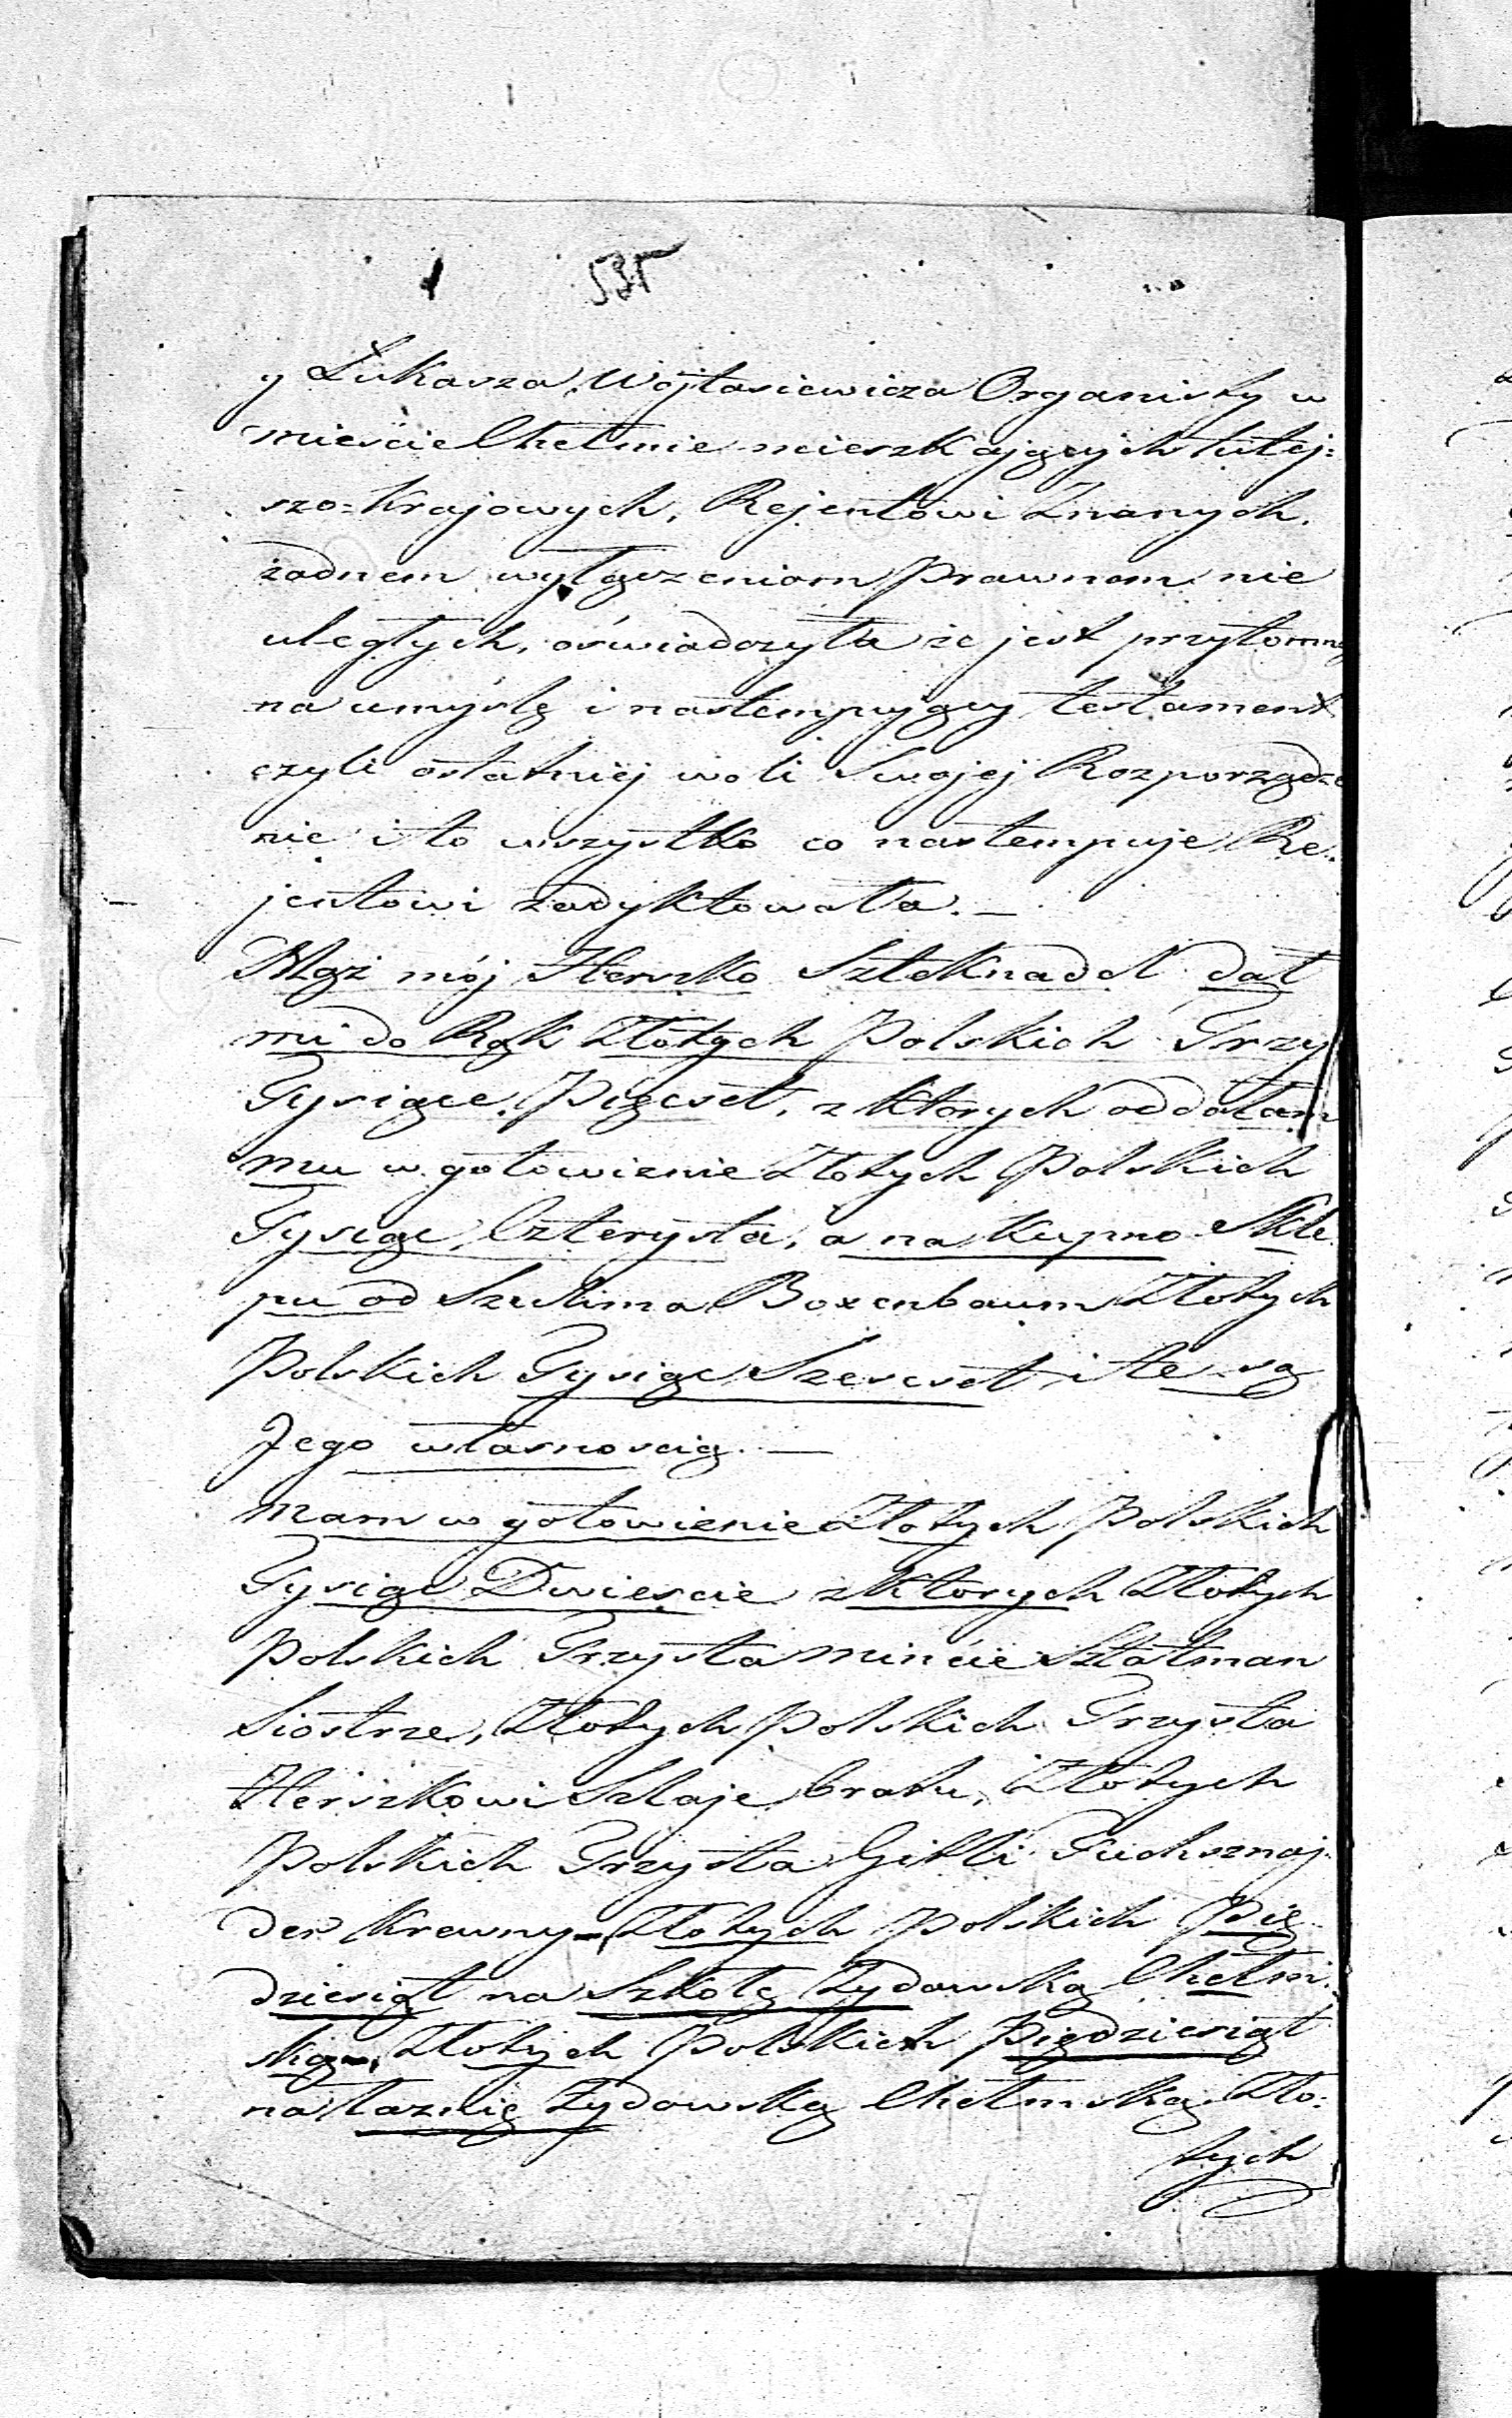 535
y Łukasza Wojtasiewicza Organisty w
mieście Chełmie mieszkających tutej=
szo=Krajowych, Rejentowi Znanych,
żadnem wyłączeniom Prawnom nie
uległych, oświadczyła że jest przytomną
na umyślę i nastempujący testament
czyli ostatniej woli Swojej Rozporządze
nie i to wszystko co nastempuje Re.
jentowi zadyktowała. —
Mąż mój Herszko Szteknadel dał
mi do Rąk Złotych Polskich Trzy
Tysiące Pięcset, z których oddałam
mu w gotowiznie Złotych Polskich
Tysiąc Czterysta, a na Kupno Skle
pu od Szulima Boxenbaum Złotych
Polskich Tysiąc Szescset i te są
Jego własnoscią. —
Mam w gotowiznie Złotych Polskich
Tysiąc Dwiescie z których Złotych
Polskich Trzysta Mińcie Sztatman
Siostrze, Złotych Polskich Trzysta
Herszkowi Szlaje bratu, Złotych
Polskich Trzysta Gitli Fuchsznaj
der Krewny, Złotych Polskich Pię
dziesiąt na Szkołę Żydowską Chełm.
ską, Złotych Polskich Piędziesiąt
na łaznię Żydowską Chełmską Zło=
tych